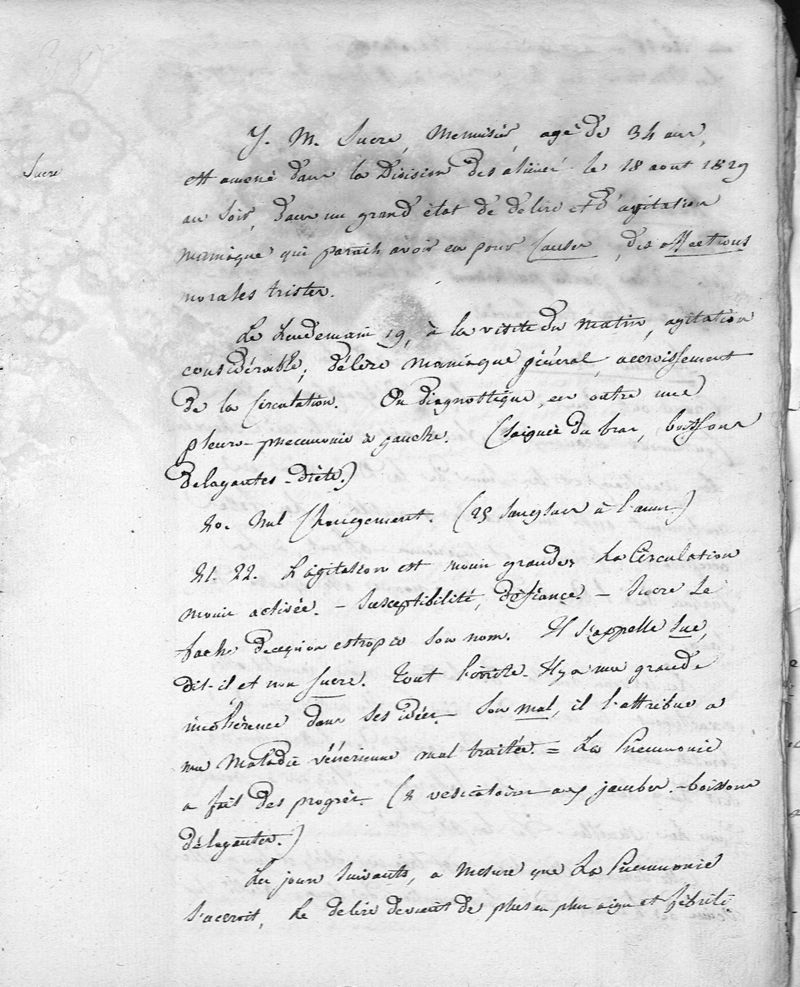 Sucre
J. M. Sucre, Menuisier, agé de 34 ans,
est amené dans la Division des aliénés le 18 aout 1829
au soir, dans un grand état de délire et d'agitation
maniaque qui parait avoir eu pour Causes, des affections
morales tristes.
Le Lendemain 19, à la visite du matin, agitation
considérable; délire maniaque général, accroissement
de la Circulation. On diagnostique, en outre une
pleuro-pneumonie à gauche. (Saignée du bras, boissons
délayantes - diète.)
20. Nul Changement. (25 Sangsues à l'anus)
21. 22. L'agitation est moins grande, La Circulation
moins activée. - Susceptibilité, défiance. - Sucre se
fache de ce qu'on estropie son nom. Il s'appelle Sue,
dit-il et non Sucre. Tout l'irrite. Il y a une grande
incohérence dans ses idées. Son mal, il l'attribue a
une maladie vénérienne mal traitée. = La Pneumonie
a fait des progrès. (2 vesicatoires aux jambes. - boissons
délayantes.)
Les jours suivants, a mesure que La Pneumonie
s'accroit, Le délire devient de plus en plus aigu et fébrile